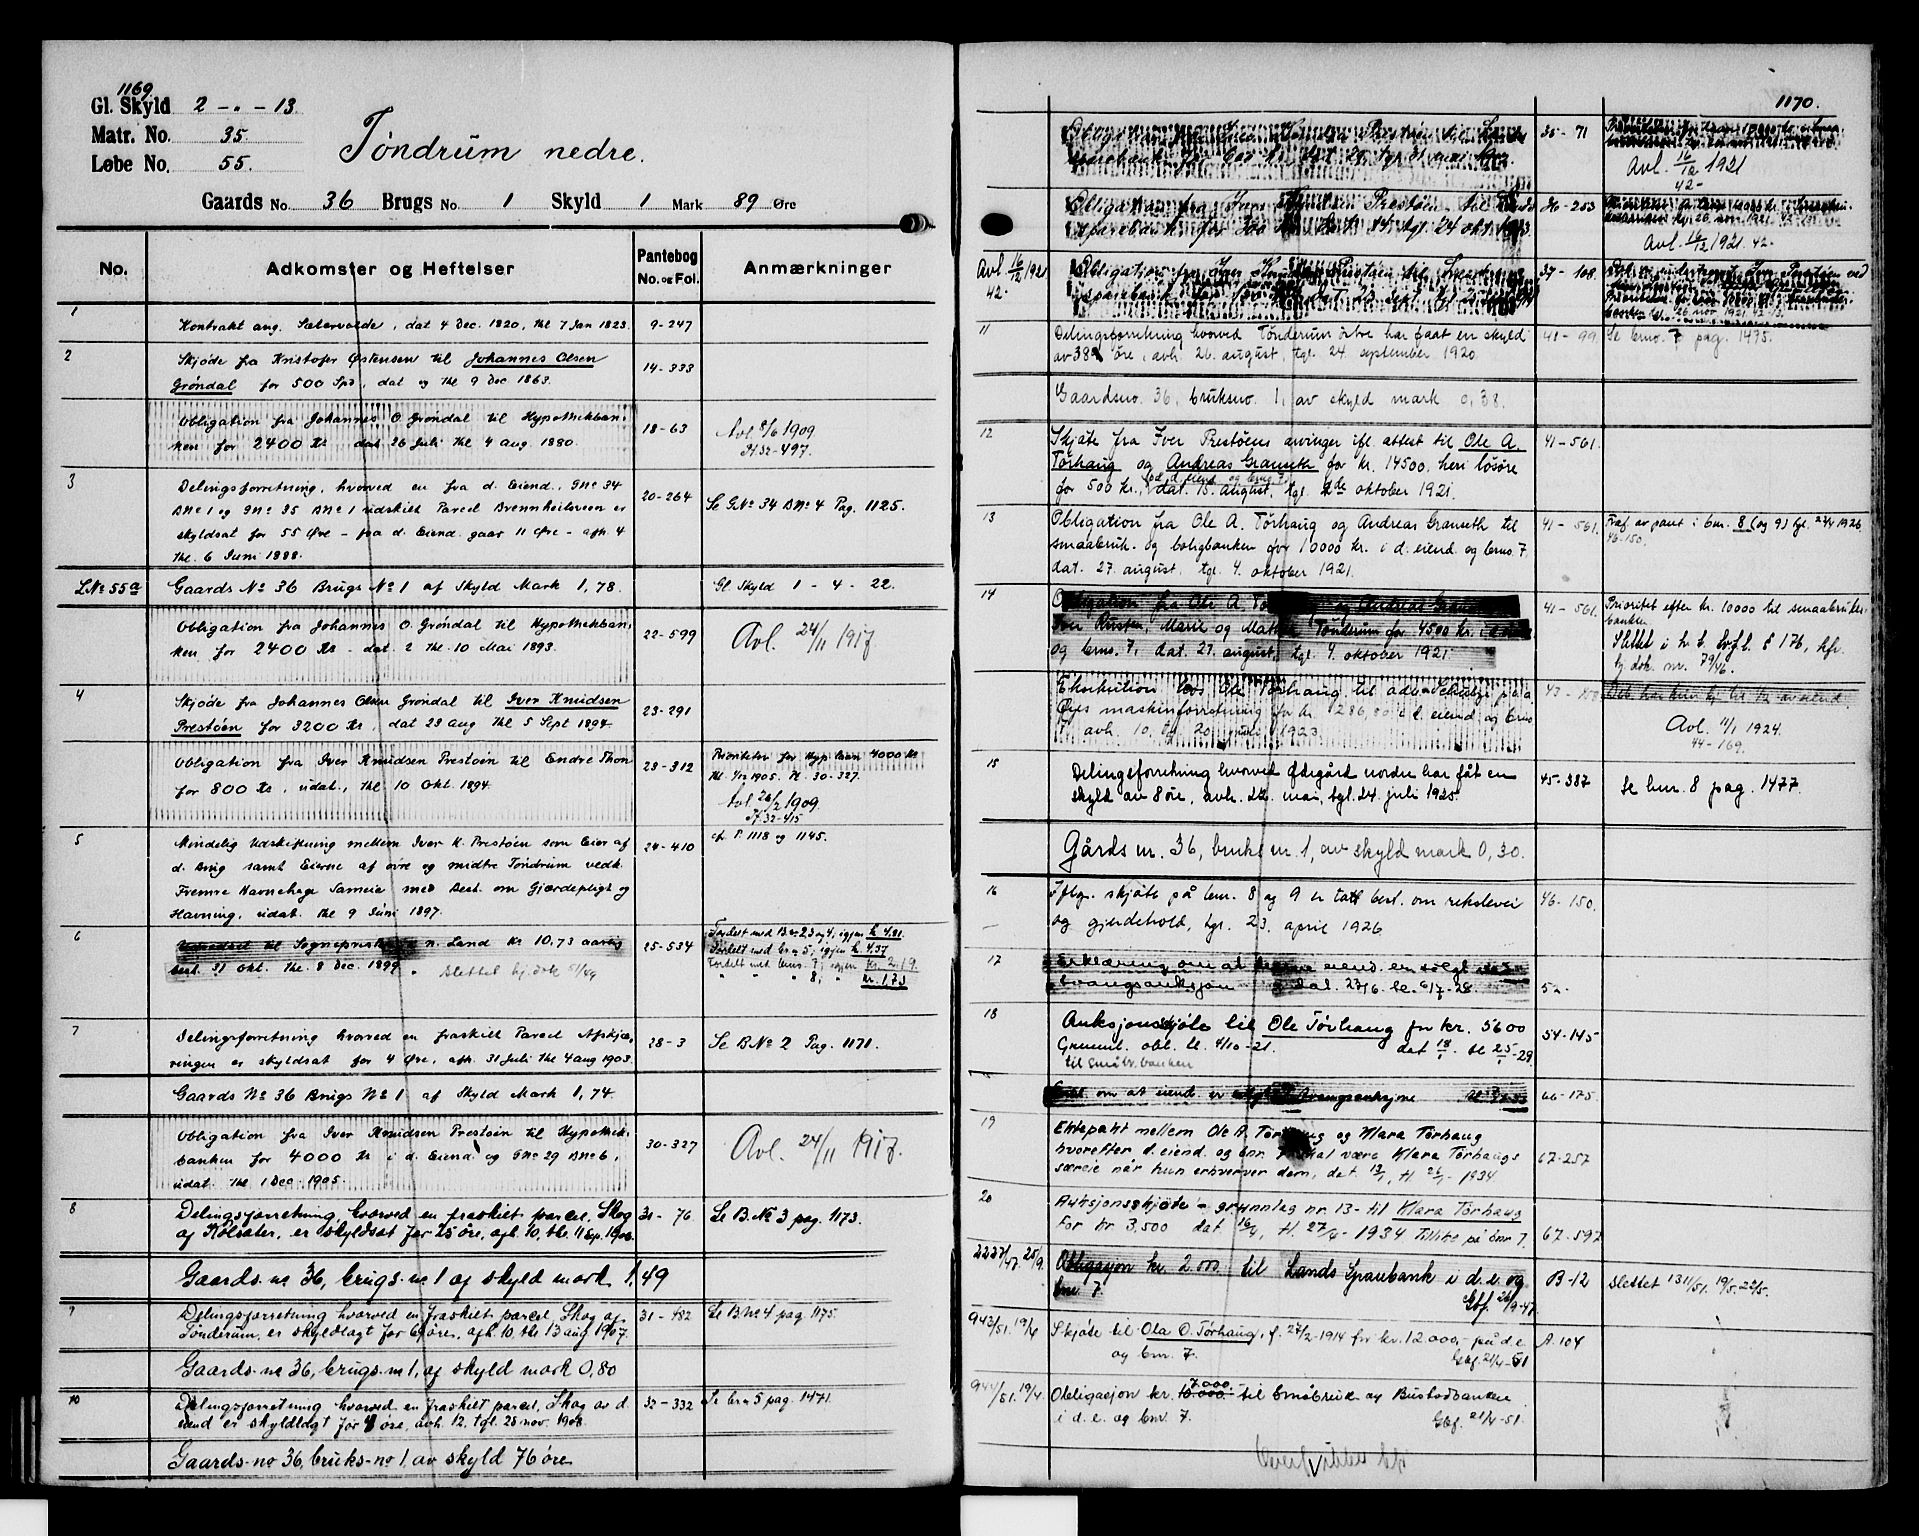 1169.
Gl. Skyld 2 - " - 13.
Matr. No. 35.
Løbe No. 55.
Tøndrum nedre.
Gaards No. 36 Brugs No. 1 Skyld 1 Mark 89 Øre
No. Adkomster og Heftelser Pantebog No. og Fol. Anmærkninger
1 Kontrakt ang. Sætervolde, dat 4 Dec. 1820, thl 7 Jan 1823. 9-247
2 Skjøde fra Kristofer Østensen til Johannes Olsen
Grøndal for 500 Spd, dat og thl 9 Dec 1863. 14-333
Obligation fra Johannes O. Grøndal til Hypothekban-
ken for 2400 Kr dat 26 Juli thl 4 aug. 1880. 18-63 Avl 8/6 1909.
Pt. 32-497.
3 Delingsforretning, hvorved en fra d. Eiend., GNo 34
BNo 1 og GNo 35 BNo 1 udskilt Parcel Brennheilereen er
skyldsat for 55 Øre - fra d. Eiend. gaar 11 Øre - afh 4
thl. 6 Juni 1888. 20-264 Se GNo 34 BNo 4 Pag. 1125.
LNo 55a Gaards No 36 Brugs No 1 af Skyld Mark 1,78. Gl Skyld 1 - 4 - 22.
Obligation fra Johannes O. Grøndal til Hypothekban-
ken for 2400 Kr - dat. 2 thl. 10 Mai 1893. 22-599 Avl. 24/11 1917
4 Skjøde fra Johannes Olsen Grøndal til Iver Knudsen
Prestøen for 3200 Kr, dat 23 aug thl 5 Sept 1894. 23-291
Obligation fra Iver Knudsen Prestøen til Endre Thon
for 800 Kr, udat., thl 10 Okt. 1894. 23-312 Prioritetes for Hyp. banken 4000 Kr
thl. 1/12 1905. Pt. 30-327.
Avl 26/2 1909.
Pt. 32-415
5 Mindelig Udskiftning mellem Iver K. Prestøen som Eier af
d. Brug samt Eierne af øvre og midtre Tøndrum vedk.
Fremre Havnehage Sameie med Best. om Gjærdepligt og
Havning, udat. thl 9 Juni 1897. 24-410 cf. P. 1118 og 1145.
6 til Sognepresten n. Land Kr 10,73 aarlig
best. 31 Okt. thl. 8 Dec. 1899. Slettet 25-534
Fordelt med B.no 2, 3 og 4, igjen kr 4.81.
Fordelt med brn 5, igjen kr 4,37
Fordelt med brno. 7, igjen kr. 2.19.
" " " 8, " kr. 1,73
7 Delingsforretning hvorved en fraskilt Parcel Afskjæ-
ringen er skyldsat for 4 Øre, afh. 31 Juli thl 4 aug 1903. 28-3 Se BNo 2 Pag. 1171.
Gaards No 36 Brugs No 1 af Skyld Mark 1,74.
Obligation fra Iver Knudsen Prestøen til Hypothek-
banken for 4000 Kr i d. Eiend. og GNo 29 BNo 6,
udat. thl 1 Dec. 1905. 30-327 Avl. 24/11 1917.
8 Delingsforretning hvorved en fraskilt parcel, Skog
af Kolsæter, er skyldsat for 25 øre, afh. 10, thl. 11 Sep. 1906. 31-76. Se B. No 3 pag. 1173.
Gaards-no 36, brugs-no 1 af skyld mark 1,49
9 Delingsforretning hvorved en fraskilt parcel, Skog af
Tønderum, er skyldlagt for 69 øre, afh. 10. thl 13 aug 1907. 31-482 Se B.No 4 pag. 1175.
Gaards-no 36, brugs-no 1, af skyld mark 0,80
10 Delingsforretning hvorved en fraskilt parcel, Skog av d.
eiend er skyldlagt for 4 øre, avh. 12. tgl. 28 nov. 1908. 32-332 Se brn 5 pag. 1471.
Gaards-no 36, bruks-no 1, av skyld 76 øre.
1170.
Obligation fra Iver Knudsen Prestøen til Lands
sparebank for 600 kr. 35-71 Avl. 16/12 1921
42-
Obligation fra Iver Knudsen Prestøen til Lands
sparebank for 300 kr. tgl. 24 okt. 1913. 36-253 Avl. 16/12 1921. 42-
Avl 16/12 1921
42- Obligation fra Iver Knudsen Prestøen til Lands
sparebank 37-108.
11 Delingsforretning hvorved Tønderum østre har faat en skyld
av 38 øre, avh. 26. august, tgl. 24. september 1920. 41-99. Se brno. 7 pag. 1475.
Gaardsno. 36, bruksno. 1, av skyld mark 0,38.
12 Skjøte fra Iver Prestøens arvinger ifl. attest til Ole A.
Tørhaug og Andreas Gramuth for kr. 14500, heri løsøre
for 500 kr., (på d. eiend. og brno 7) dat. 15. august, tgl. 4de oktober 1921. 41-561.
13 Obligation fra Ole A. Tørhaug og Andreas Gramuth til
smaabruk- og boligbanken for 10000 kr. i d. eiend. og brno. 7.
dat. 27. august, tgl. 4. oktober 1921. 41-561. Fraf. av pant i bnr. 8 (og 9) tgl. 23/4 1926
46-150.
14 Obligation fra Ole A. Tørhaug og Andreas Gramuth
Iver Kusten, Marie og Mathea Tønderum for 4500 kr. i d. eiend
og brno. 7, dat. 27. august, tgl. 4. oktober 1921. 41-561. Prioritet efter kr. 10000 til smaabruker-
banken
Slettet i h. t. lovgl. § 176, kfr.
tj. dok. nr. 79/46.
15 Eksekution hos Ole Tørhaug til adv. p. a.
Øyes maskinforretning for kr. 1286,80 i d. eiend. og brno
7. avh. 10. og 20. juli 1923. 43- Avl. 11/1 1924.
44-169.
Delingsforretning hvorved Ødegård nordre har fåt en
skyld av 8 øre, avh. 22. mai, tgl. 24. juli 1925. 45-387 Se bnr. 8 pag. 1477.
Gårds nr. 36, bruks nr. 1, av skyld mark 0,30.
16 Iflg. skjøte på bnr. 8 og 9 er tatt best. om rekslevei
og gjerdehold, tgl. 23. april 1926 46-150.
17 Erklæring om at denne eiend. er solgt ved
tvangsauksjon dat. 27/6. tl. 6/7-28. 52-
18 Auksjonsskjøte til Ole Tørhaug for kr. 5600
Grunnl. obl. tl. 4/10-21. dat 18/1 tl 25/1-29.
til småbr. banken 54-145
Erkl. om at eiend. er solgt ved tvangsauksjon 66-175.
19 Ektepakt mellem Ole A. Tørhaug og Klara Tørhaug
hvorefter d. eiend. og bnr. 7 skal være Klara Tørhaugs
særeie når hun erhverver dem, dat. 13/1, tl 26/1-1934 67-257
20 Auksjonsskjøde - grunnlag nr. 13 - til Klara Tørhaug
for kr. 3,500 dat 16/4, tl. 27/4-1934 Tillike på bnr 7. 67-597
2227/47. 25/9. Obligasjon kr. 2000 til Lands Sparebank i d. e. og
bnr 7. Gbf. 26/9-47. B-12 Slettet 1311/51. 19/5. 22/5.
943/51. 19/4 Skjøte til Ola O. Tørhaug, f. 27/2-1914 for kr. 12.000,- på d.e
og bnr. 7. Gbf. 21/4-51 A. 104
944/51. 19/4. Obligasjon kr. 7.000,- 10.000.- til Småbruk og Bustadbanken
i d. e. og bnr. 7. Gbf. 21/4-51.